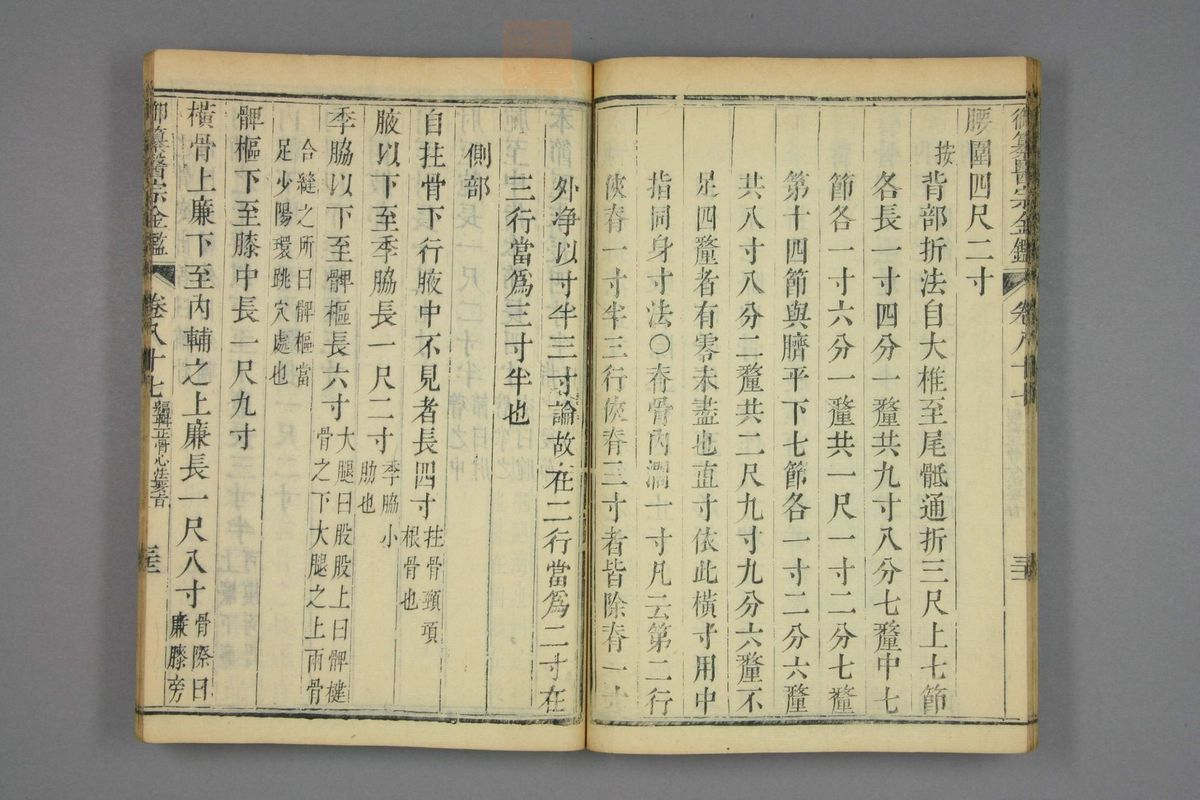 御纂醫宗金鑑 卷八十七
腰圍四尺二寸
按背部折法自大椎至尾骶通折三尺上七節
各長一寸四分一釐共九寸八分七釐中七
節各一寸六分一釐共一尺一寸二分七釐
第十四節與臍平下七節各一寸二分六釐
共八寸八分二釐共二尺九寸九分六釐不
足四釐者有零未盡也直寸依此橫寸用中
指同身寸法〇脊骨內濶一寸凡云第二行
俠脊一寸半三行俠脊三寸者皆除脊一寸
外淨以寸半三寸論故在二行當爲二寸在
三行當爲三寸半也
側部
自拄骨下行腋中不見者長四寸拄骨頸項
根骨也
腋以下至季脇長一尺二寸季脇小
肋也
季脇以下至髀樞長六寸大腿曰股股上曰髀楗
骨之下大腿之上兩骨
合縫之所曰髀樞當
足少陽環跳穴處也
髀樞下至膝中長一尺九寸
橫骨上廉下至內輔之上廉長一尺八寸骨際曰
廉膝旁
御纂醫宗金鑑 卷八十七 編輯正骨心法要旨